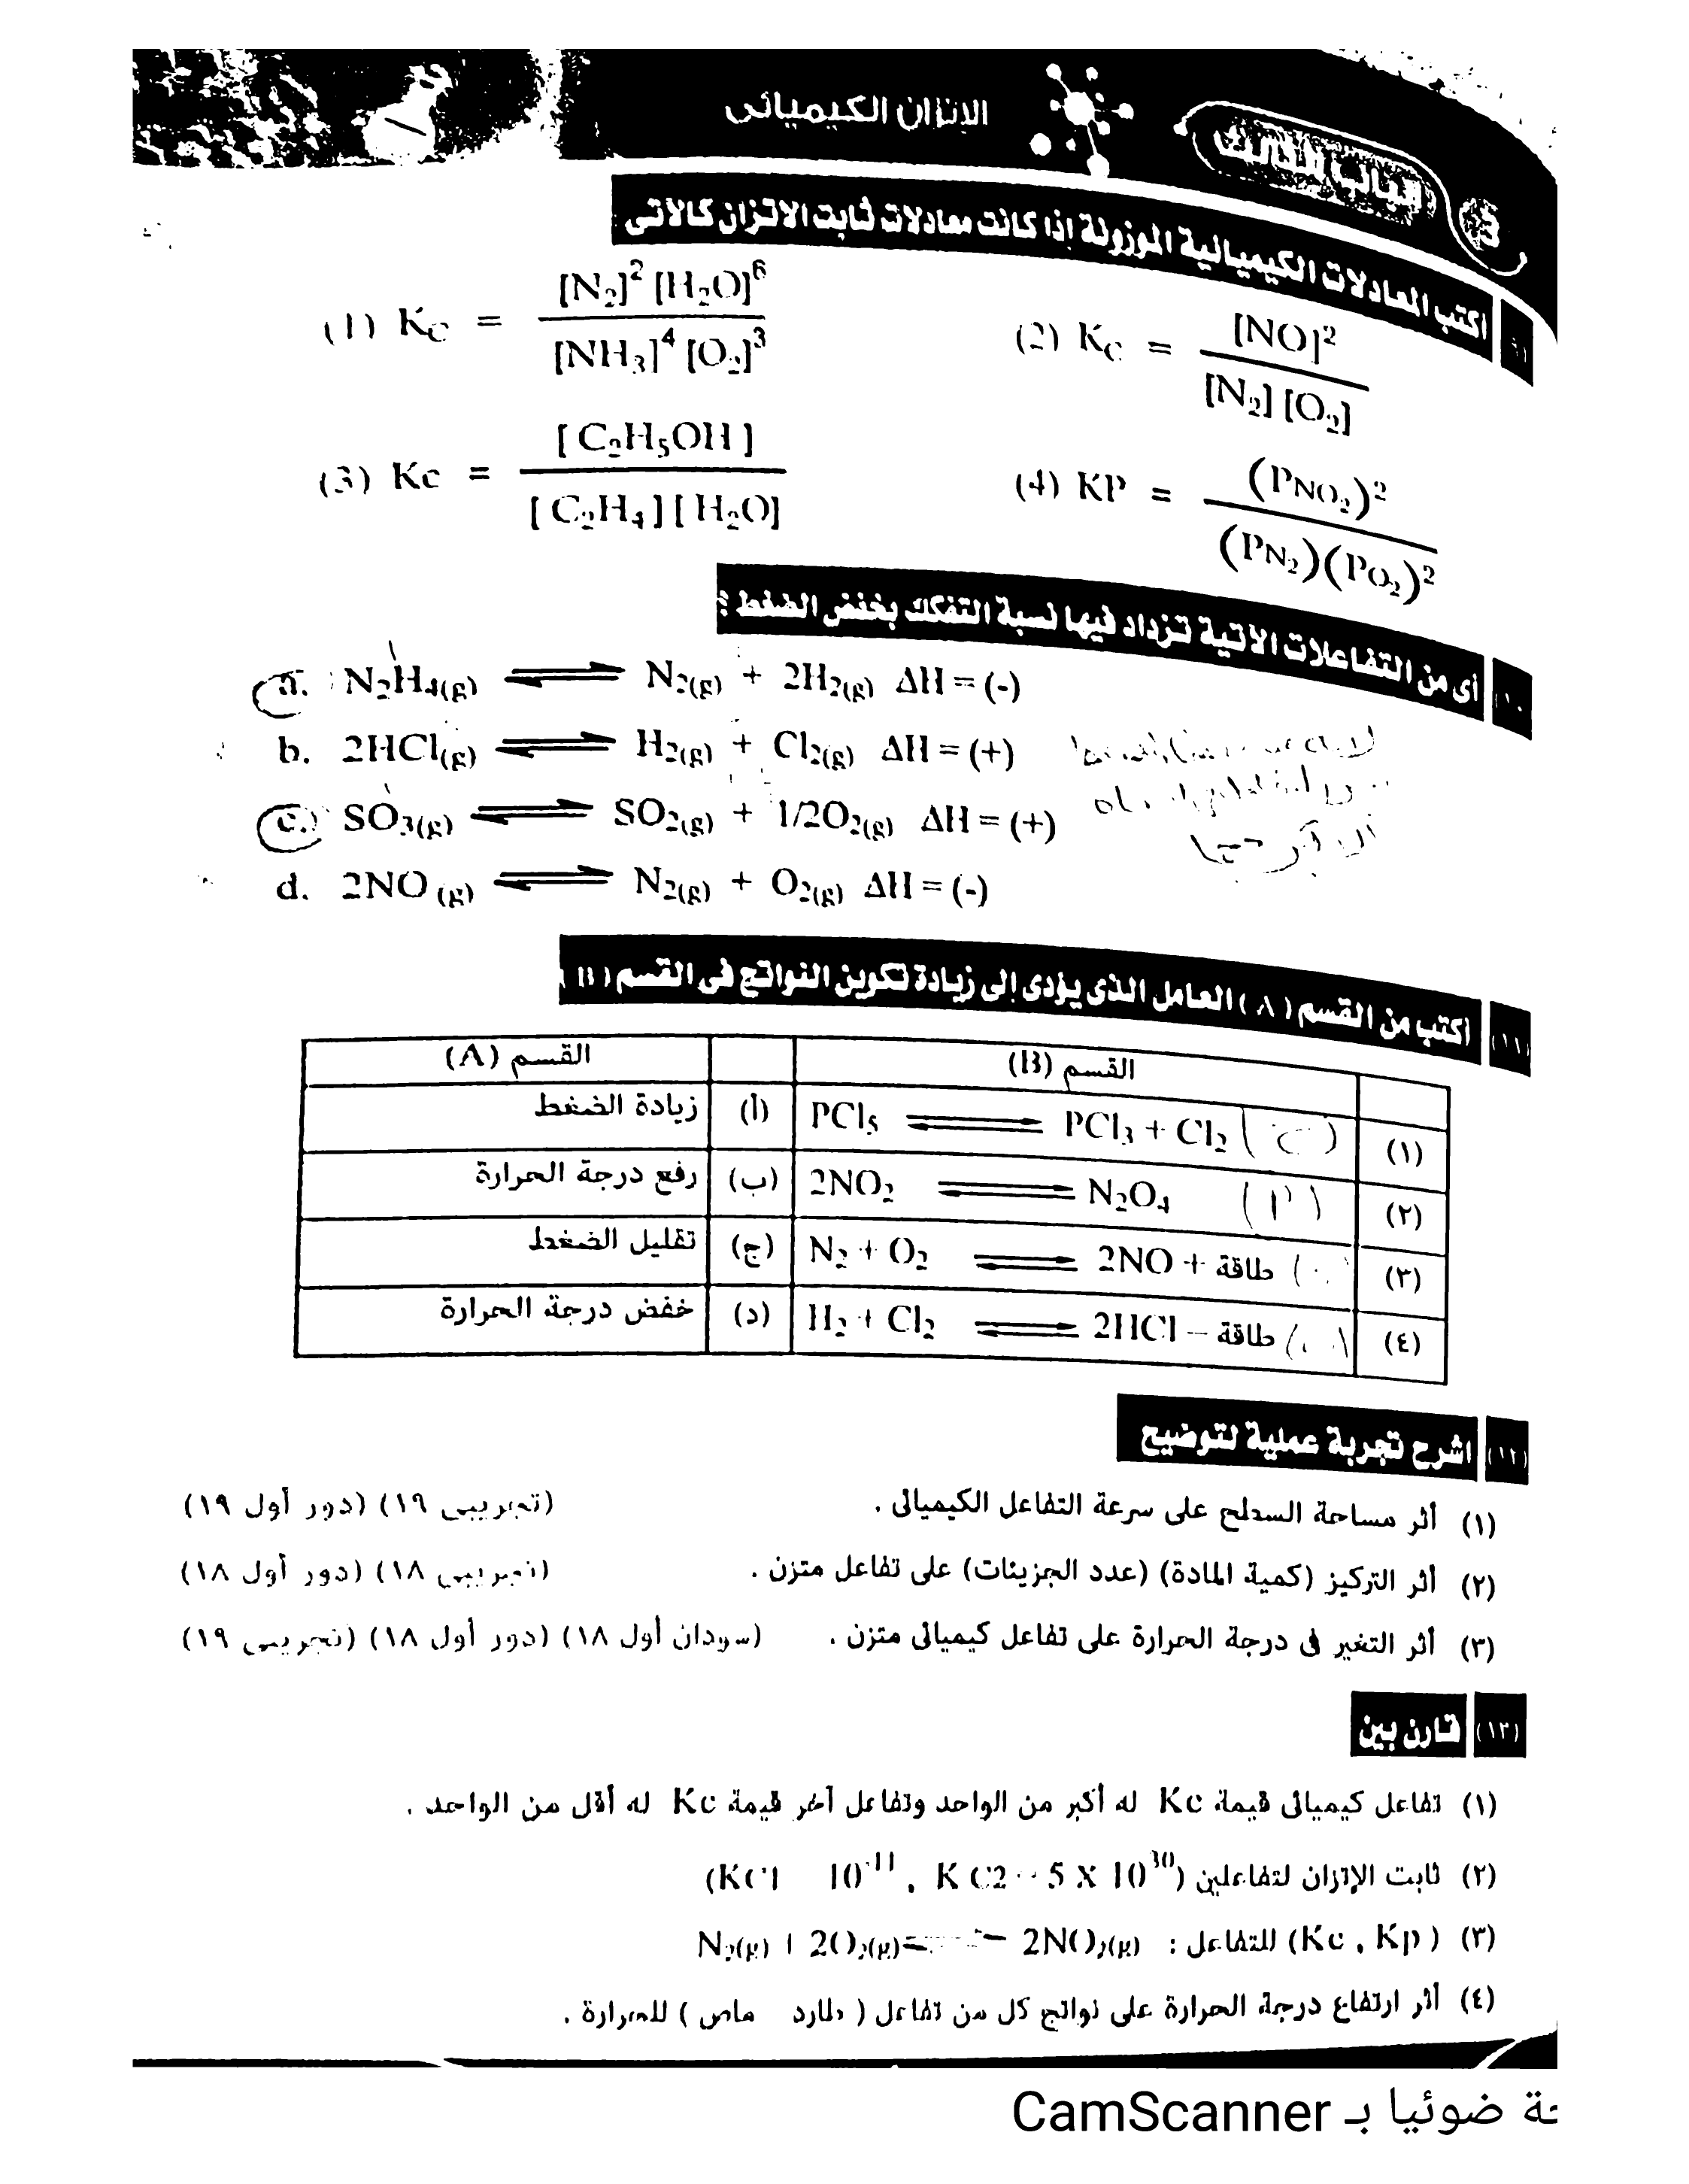 الإتزان الكيميائى
الباب الثالث
3
(٩) اكتب المعادلات الكيميائية الموزونة إذا كانت معادلات ثابت الاتزان كالآتى
(1) Kc = [N₂]² [H₂O]⁶ / [NH₃]⁴ [O₂]³
(2) Kc = [NO]² / [N₂] [O₂]
(3) Kc = [ C₂H₅OH ] / [ C₂H₄ ] [ H₂O]
(4) KP = (PNO₂)² / (PN₂)(PO₂)²
(١٠) أى من التفاعلات الآتية تزداد فيها نسبة التفكك بخفض الضغط ؟
a. N₂H₄(g) ⇌ N₂(g) + 2H₂(g) ΔH = (-)
b. 2HCl(g) ⇌ H₂(g) + Cl₂(g) ΔH = (+)
c. SO₃(g) ⇌ SO₂(g) + 1/2O₂(g) ΔH = (+)
d. 2NO (g) ⇌ N₂(g) + O₂(g) ΔH = (-)
(١١) أكتب من القسم ( A ) العامل الذى يؤدى إلى زيادة تكوين النواتج فى القسم ( B )
القسم (B) القسم (A)
(١) PCl₅ ⇌ PCl₃ + Cl₂ ( ج ) (أ) زيادة الضغط
(٢) 2NO₂ ⇌ N₂O₄ ( أ ) (ب) رفع درجة الحرارة
(٣) N₂ + O₂ ⇌ 2NO + طاقة (ج) تقليل الضغط
(٤) H₂ + Cl₂ ⇌ 2HCl – طاقة (د) خفض درجة الحرارة
(١٢) اشرح تجربة عملية لتوضيح
(١) أثر مساحة السطح على سرعة التفاعل الكيميائى . (تجريبى ١٩) (دور أول ١٩)
(٢) أثر التركيز (كمية المادة) (عدد الجزيئات) على تفاعل متزن . (تجريبى ١٨) (دور أول ١٨)
(٣) أثر التغير فى درجة الحرارة على تفاعل كيميائى متزن . (سودان أول ١٨) (دور أول ١٨) (تجريبى ١٩)
(١٣) قارن بين
(١) تفاعل كيميائى قيمة Kc له أكبر من الواحد وتفاعل آخر قيمة Kc له أقل من الواحد .
(٢) ثابت الإتزان لتفاعلين (KC1 10⁻¹¹ , K C2 = 5 X 10³⁰)
(٣) (Kc , Kp ) للتفاعل : N₂(g) + 2O₂(g) ⇌ 2NO₂(g)
(٤) أثر ارتفاع درجة الحرارة على نواتج كل من تفاعل ( طارد ماص ) للحرارة .
ضوئيا بـ CamScanner